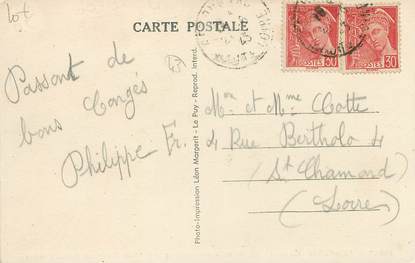 lot
CARTE POSTALE
POSTES 30
POSTES 30
43
Passont de
bons Congés
Philippe Fr.
Photo-Impression Léon Margerit - Le Puy - Reprod. Interd.
Mr et Mme Clotte
4 Rue Bertholo 4
(St Chamond)
(Loire)